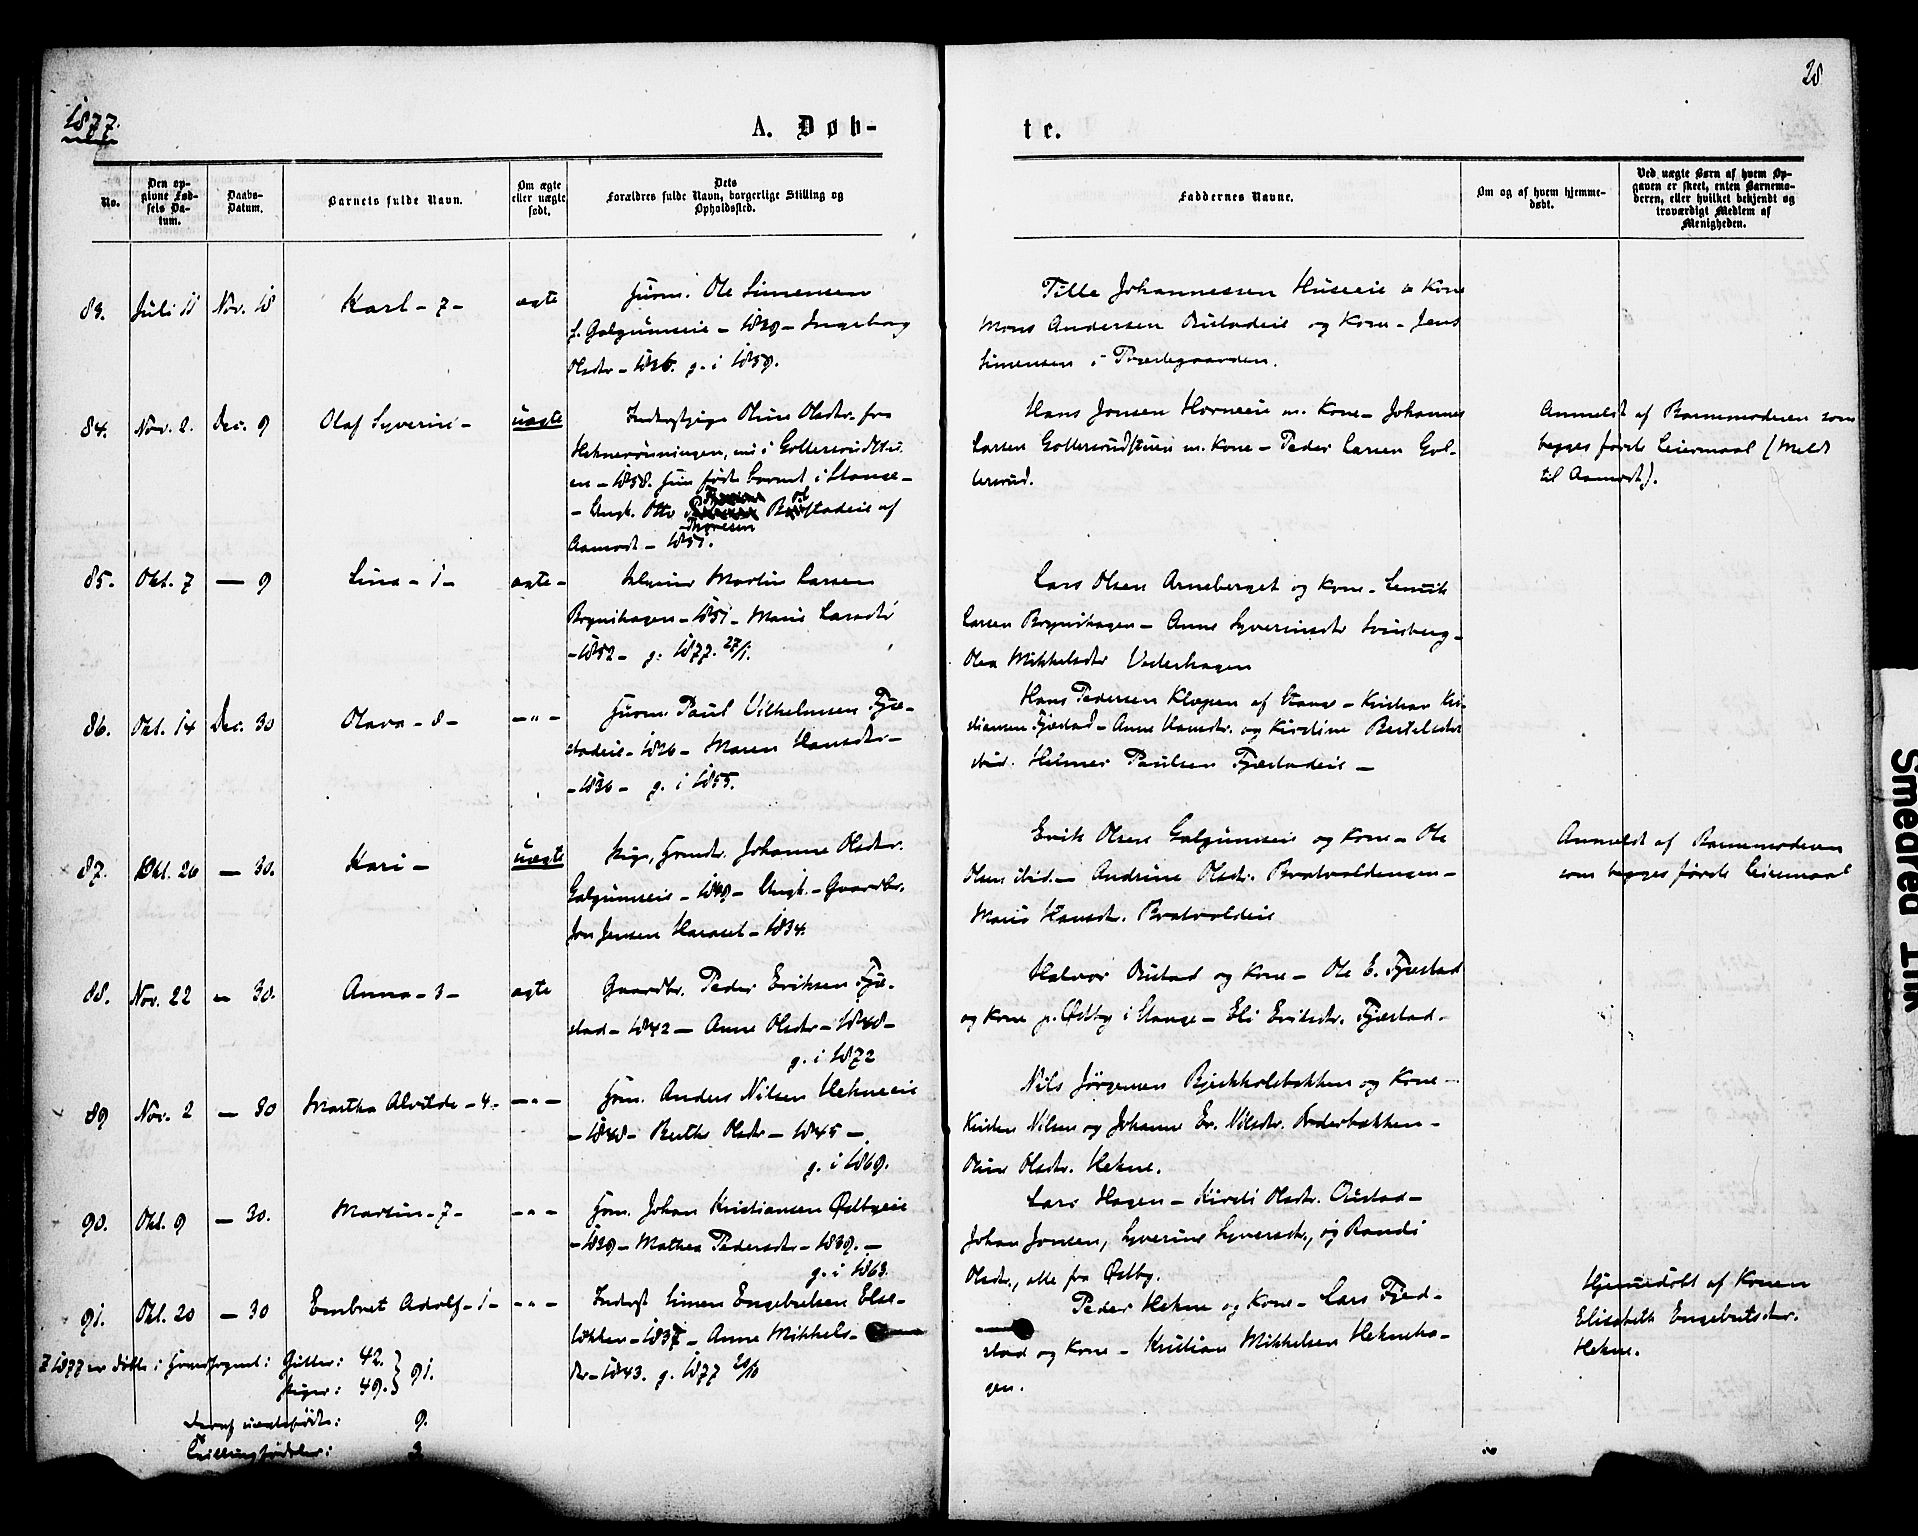 28
1877.
A. Døb-
te.
No.
Den op-
givne Fød-
sels Da-
tum.
Daabs-
Datum.
Barnets fulde Navn.
Om ægte
eller uægte
født.
Dets
Forældres fulde Navn, borgerlige Stilling og
Opholdssted.
Faddernes Navne.
Om og af hvem hjemme-
døbt.
Ved uægte Børn af hvem Op-
gaven er skeet, enten Barnemo-
deren, eller hvilket bekjendt og
troværdigt Medlem af
Menigheden.
83. Juli 11 Nov. 18 Karl - 7 - ægte
Husm. Ole Simensen
f. Galgumseie - 1829 - Ingeborg
Olsdtr - 1836. g. i 1859.
Tille Johannessen Huseeie m Kone
Mons Andersen Rustadeie og Kone - Jens
Simensen i Prestegaarden.
84. Nov. 2. Dec. 9 Olaf Syverin - uægte
Inderstpige Oline Olsdtr. fra
Heknerønningen, nu i Gollersrudstu-
en - 1858. Hun fødte barnet i Stange -
- Ungk. Otto Rustadeie af
Thoresen
Aamodt - 1851.
Hans Jonsen Horneeie m. Kone - Johannes
Larsen Gollersrudstuen m. Kone - Peder Larsen Gol-
lersrud.
Anmeldt af Barnemoderen som
begges første Leiermaal (Meldt
til Aamodt).
85. Okt. 7 — 9 Lina - 1 - ægte -
Martin Larsen
Brynihagen - 1851 - Marie Larsdtr
- 1852 - g. 1877. 27/1.
Lars Olsen Arneberget og Kone -
Larsen Brynihagen - Anne Syverinsdtr Svinsberg -
Olea Mikkelsdtr Vederhagen
86. Okt. 14 Dec. 30 Olava - 8 - -"-
Husm. Paul Vilhelmsen Fjæ-
stadeie - 1826 - Maren Hansdtr -
- 1830 - g. i 1855.
Hans Pedersen Klæpen af Stange - Kristian Kri-
stiansen Fjæstad - Anne Hansdtr. og Kirstine Bertelsdtr
ibid. Helmer Paulsen Fjæstadeie -
87. Okt. 26 — 30. Kari - uægte
Pige, Husmdtr. Johanne Olsdtr.
Galgumseie - 1849 - Ungk. - Gaardbr.
Jon Jensen Haraset - 1834.
Erik Olsen Galgumseie og Kone - Ole
Olsen ibid. - Andrine Olsdtr. Bratvoldengen -
Marie Hansdtr. Bratvoldeie
Anmeldt af Barnemoderen
som begges første Leiermaal
88. Nov. 22 — 30. Anna - 3 - ægte
Gaardbr. Peder Eriksen Fjæ-
stad - 1842 - Anne Olsdtr - 1848 -
g. i 1872
Halvor Rustad og Kone - Ole E. Fjæstad
og Kone p. Østby i Stange - Eli Eriksdtr. Fjæstad -
89 Nov. 2 — 30 Martha Alvilde - 4 - -"-
Hsm. Anders Nilsen Hekneeie
- 1848 - Berthe Olsdtr - 1845 -
g. i 1869.
Nils Jørgensen Bjerkholsbakken og Kone -
Kristen Nilsen og Johanne Er. Nilsdtr. Brderbakken -
Oline Olsdtr. Hekne.
90. Okt. 9 — 30. Martin - 7 - -"-
Hsm. Johan Kristiansen Østbyeie
- 1829 - Mathea Pedersdtr - 1839. -
g. i 1863.
Lars Hagen - Kirsti Olsdtr. Oustad -
Johan Jonsen, Syverine Syversdtr., og Randi
Olsdtr., alle fra Østby.
91. Okt. 20 — 30 Embret Adolf - 1 - -"-
Inderst Simen Engebretsen Else-
løkken - 1837 - Anne Mikkels-
dtr - 1843. g. 1877 20/10
Peder Hekne og Kone - Lars Fjæ-
stad og Kone - Kristian Mikkelsen Hekneha-
gen.
Hjemmedøbt af Konen
Elisabeth Engebretsdtr.
Hekne.
I 1877 er døbte i Hovedsognet: Gutter: 42. } 91.
Piger: 49.
Deraf uægtefødte: 9.
Tvillingfødsler: 3
Smedrud Ink